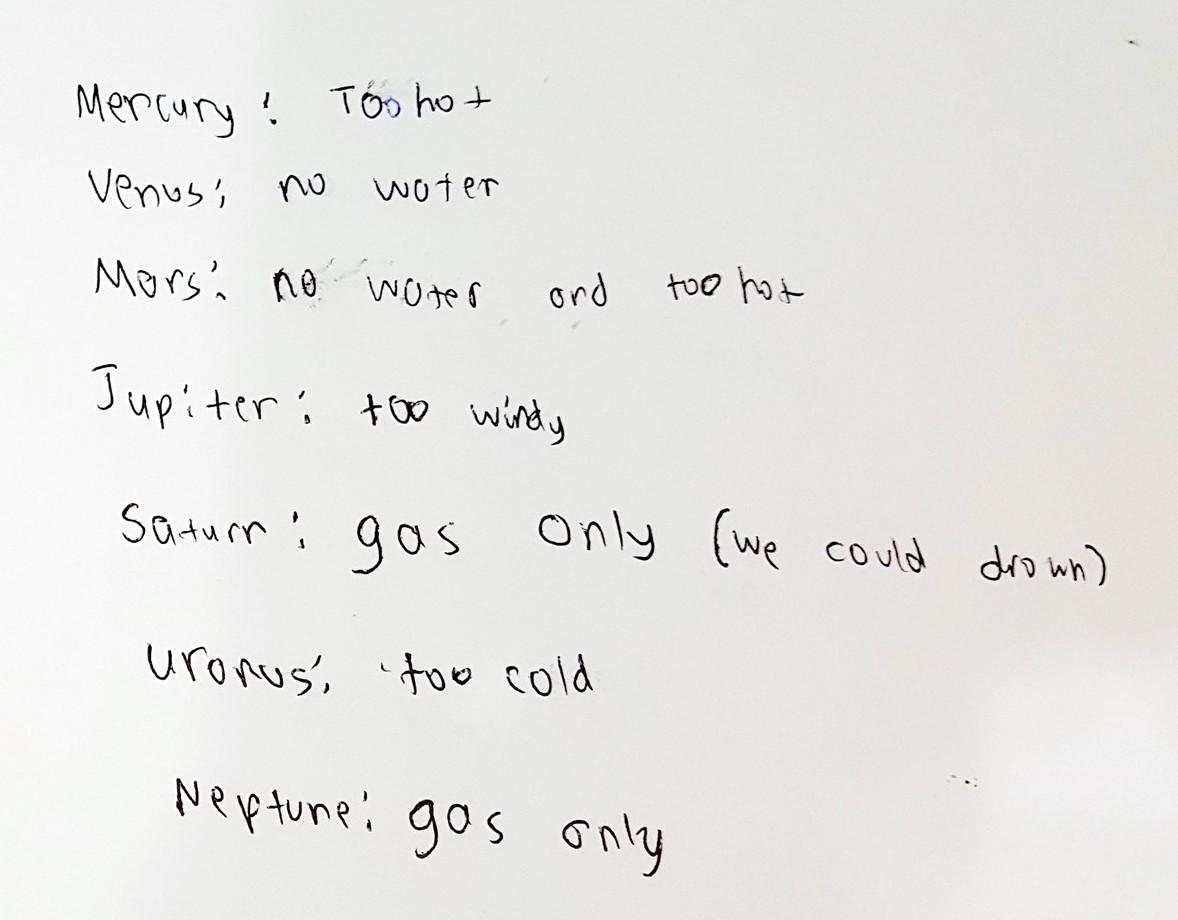 Mercury: Too hot
Venus: no water
Mars: no water and too hot
Jupiter: too windy
Saturn: gas only (we could drown)
Uranus: too cold
Neptune: gas only